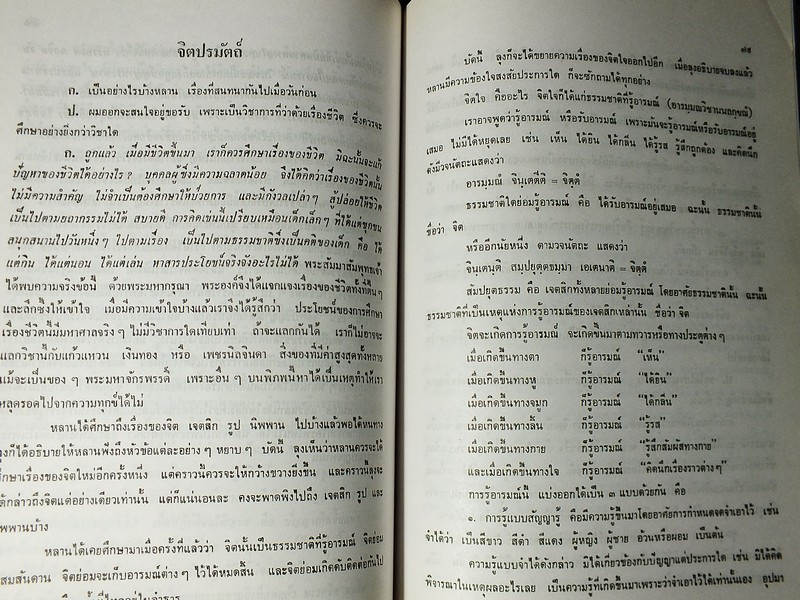 จิตปรมัตถ์
ก. เป็นอย่างไรบ้างหลาน เรื่องที่สนทนากันไปเมื่อวันก่อน
ป. ผมออกจะสนใจอยู่ขอรับ เพราะเป็นวิชาการที่ว่าด้วยเรื่องชีวิต ซึ่งควรจะ
ศึกษาอย่างยิ่งกว่าวิชาใด
ก. ถูกแล้ว เมื่อมีชีวิตขึ้นมา เราก็ควรศึกษาเรื่องของชีวิต มิฉะนั้นจะแก้
ปัญหาของชีวิตได้อย่างไร ? บุคคลผู้ซึ่งมีความฉลาดน้อย จึงได้คิดว่าเรื่องของชีวิตนั้น
ไม่มีความสำคัญ ไม่จำเป็นต้องศึกษาให้ป่วยการ และมีกังวลเปล่าๆ สู้ปล่อยให้ชีวิต
เป็นไปตามยถากรรมไม่ได้ สบายดี การคิดเช่นนี้เปรียบเหมือนเด็กเล็กๆ ที่ได้แต่ซุกซน
สนุกสนานไปวันหนึ่งๆ ไปตามเรื่อง เป็นไปตามธรรมชาติซึ่งเป็นคติของเด็ก คือ ให้
ได้แต่กิน ได้แต่นอน ได้แต่เล่น หาสารประโยชน์จริงจังอะไรไม่ได้ พระสัมมาสัมพุทธเจ้า
ได้พบความจริงข้อนี้ ด้วยพระมหากรุณา พระองค์จึงได้แจกแจงเรื่องของชีวิตทั้งที่ตื้นๆ
และลึกซึ้งให้เข้าใจ เมื่อมีความเข้าใจบ้างแล้วเราจึงได้รู้สึกว่า ประโยชน์ของการศึกษา
เรื่องชีวิตนี้มีมหาศาลจริงๆ ไม่มีวิชาการใดเทียบเท่า ถ้าจะแลกกันได้ เราก็ไม่อาจจะ
แลกวิชานี้กับแก้วแหวน เงินทอง หรือ เพชรนิลจินดา สิ่งของที่มีค่าสูงสุดทั้งหลาย
แม้จะเป็นของๆ พระมหาจักรพรรดิ์ เพราะอื่นๆ บนพิภพนี้หาได้เป็นเหตุทำให้เรา
หลุดรอดไปจากความทุกข์ได้ไม่
หลานได้ศึกษาถึงเรื่องของจิต เจตสิก รูป นิพพาน ไปบ้างแล้วพอได้หนทาง
ลุงก็ได้อธิบายให้หลานฟังถึงหัวข้อแต่ละอย่างๆ หยาบๆ บัดนี้ ลุงเห็นว่าหลานควรจะได้
ศึกษาเรื่องของจิตใหม่อีกครั้งหนึ่ง แต่คราวนี้ควรจะให้กว้างขวางยิ่งขึ้น และคราวนี้ลุงจะ
ได้กล่าวถึงจิตแต่อย่างเดียวเท่านั้น แต่ก็แน่นอนละ คงจะพาดพิงไปถึง เจตสิก รูป และ
นิพพานบ้าง
หลานได้เคยศึกษามาเมื่อครั้งที่แล้วว่า จิตนั้นเป็นธรรมชาติที่รู้อารมณ์ จิตย่อม
สะสมสันดาน จิตย่อมจะเก็บอารมณ์ต่างๆ ไว้ได้หมดสิ้น และจิตย่อมเกิดดับติดต่อกันไป
๗๕
บัดนี้ ลุงก็จะได้ขยายความเรื่องของจิตใจออกไปอีก เมื่อลุงอธิบายจบลงแล้ว
หลานมีความข้องใจสงสัยประการใด ก็จะซักถามได้ทุกอย่าง
จิตใจ คืออะไร จิตใจก็ได้แก่ธรรมชาติที่รู้อารมณ์ (อารมฺมณวิชานนลกฺขณํ)
เราอาจพูดว่ารู้อารมณ์ หรือรับอารมณ์ เพราะมันจะรู้อารมณ์หรือรับอารมณ์อยู่
เสมอ ไม่มีได้หยุดเลย เช่น เห็น ได้ยิน ได้กลิ่น ได้รู้รส รู้สึกถูกต้อง และคิดนึก
ดังมีวจนัตถะแสดงว่า
อารมฺมณํ จินฺเตตีติ = จิตฺตํ
ธรรมชาติใดย่อมรู้อารมณ์ คือ ได้รับอารมณ์อยู่เสมอ ฉะนั้น ธรรมชาตินั้น
ชื่อว่า จิต
หรืออีกนัยหนึ่ง ตามวจนัตถะ แสดงว่า
จินฺเตนฺติ สมฺปยุตฺตธมฺมา เอเตนาติ = จิตฺตํ
สัมปยุตธรรม คือ เจตสิกทั้งหลายย่อมรู้อารมณ์ โดยอาศัยธรรมชาตินั้น ฉะนั้น
ธรรมชาติที่เป็นเหตุแห่งการรู้อารมณ์ของเจตสิกเหล่านั้น ชื่อว่า จิต
จิตจะเกิดการรู้อารมณ์ จะเกิดขึ้นมาตามทวารหรือทางประตูต่างๆ
เมื่อเกิดขึ้นทางตา ก็รู้อารมณ์ “เห็น”
เมื่อเกิดขึ้นทางหู ก็รู้อารมณ์ “ได้ยิน”
เมื่อเกิดขึ้นทางจมูก ก็รู้อารมณ์ “ได้กลิ่น”
เมื่อเกิดขึ้นทางลิ้น ก็รู้อารมณ์ “รู้รส”
เมื่อเกิดขึ้นทางกาย ก็รู้อารมณ์ “รู้สึกสัมผัสทางกาย”
และเมื่อเกิดขึ้นทางใจ ก็รู้อารมณ์ “คิดนึกเรื่องราวต่างๆ”
การรู้อารมณ์นี้ แบ่งออกได้เป็น ๓ แบบด้วยกัน คือ
๑. การรู้แบบสัญญารู้ คือมีความรู้ขึ้นมาโดยอาศัยการกำหนดจดจำเอาไว้ เช่น
จำได้ว่า เป็นสีขาว สีดำ สีแดง ผู้หญิง ผู้ชาย อ้วนหรือผอม เป็นต้น
ความรู้แบบจำได้ดังกล่าว มิได้เกี่ยวข้องกับปัญญาแต่ประการใด เช่น มิได้คิด
พิจารณาในเหตุผลอะไรเลย เป็นความรู้ที่เกิดขึ้นมาเพราะว่าจำเอาไว้ได้เท่านั้นเอง อุปมา